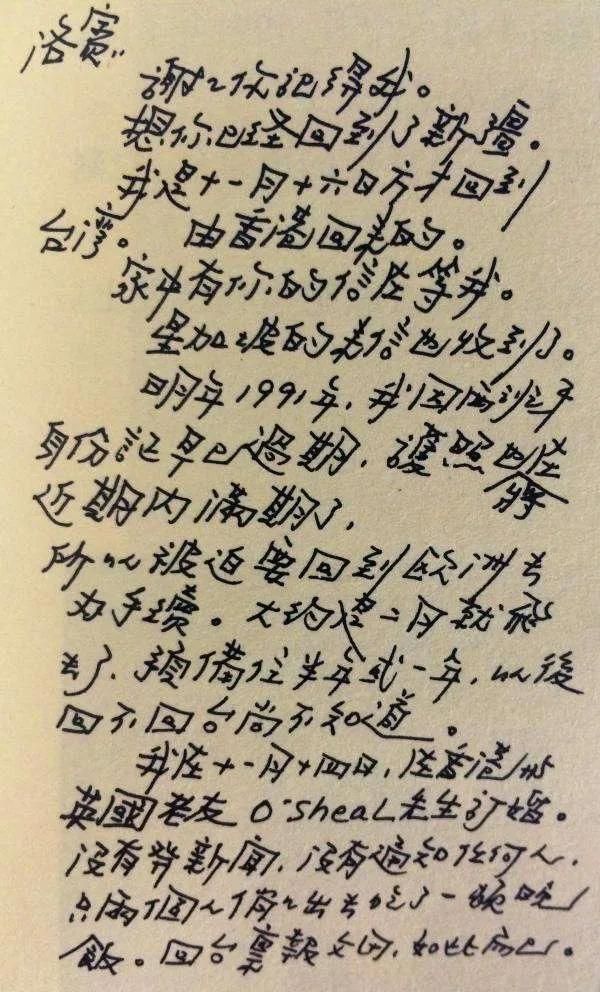 洛賓:
謝々你記得我。
想你已經回到了新疆。
我是十一月十六日方才回到
台灣。由香港回來的。
家中有你的信在等我。
星加坡的老信也收到了。
明年1991年,我因西班牙
身份証早已過期,護照也將在
近期內滿期了,
所以被迫要回到歐洲去
办手續。大約二月就飛
去了,預備住半年或一年,以後
回不回台尚不知道。
我在十一月十四日,在香港與
英國老友O'sheaL先生訂婚。
沒有發新聞,沒有通知任何人,
只兩個人悄々出去吃了一頓晚
飯。回台稟報父母,如此而已。